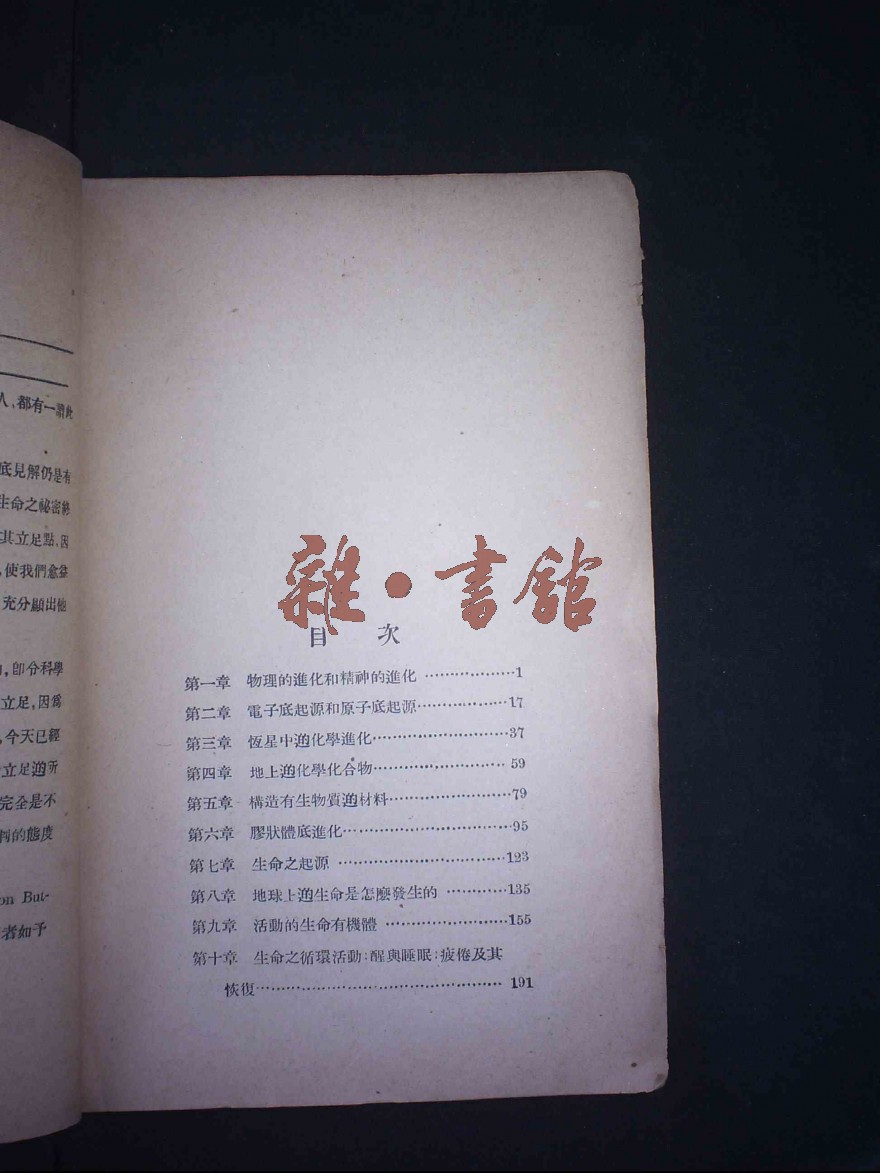 人,都有一讀此
底見解仍是有
生命之祕密終
其立足點,因
,使我們愈益
充分顯出他
,卽分科學
立足,因爲
,今天已經
立足逎所
完全是不
判的態度
on But-
者如予
雜•書館
目 次
第一章 物理的進化和精神的進化 ··················1
第二章 電子底起源和原子底起源··················17
第三章 恆星中逎化學進化···························37
第四章 地上逎化學化合物·························· 59
第五章 構造有生物質逎材料························79
第六章 膠狀體底進化·································95
第七章 生命之起源 ·································123
第八章 地球上逎生命是怎麼發生的 ············135
第九章 活動的生命有機體 ························155
第十章 生命之循環活動:醒與睡眠:疲倦及其
恢復················································ 191